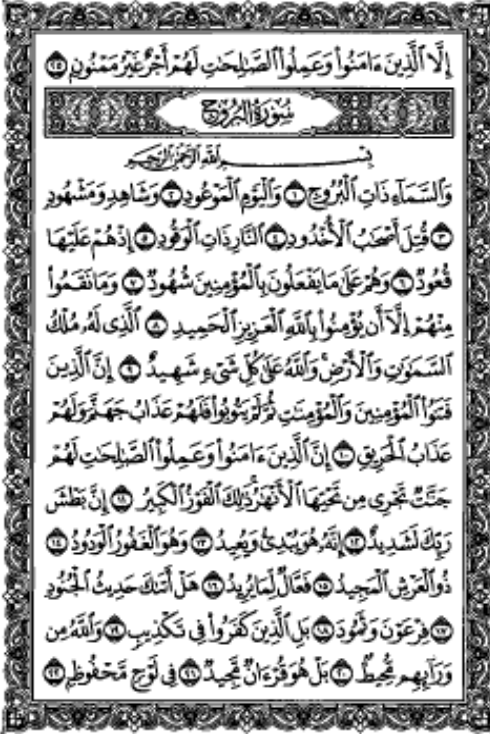 إِلَّا ٱلَّذِينَ ءَامَنُوا۟ وَعَمِلُوا۟ ٱلصَّـٰلِحَـٰتِ لَهُمْ أَجْرٌ غَيْرُ مَمْنُونٍۭ ٢٥
سُورَةُ ٱلْبُرُوجِ
بِسْمِ ٱللَّهِ ٱلرَّحْمَـٰنِ ٱلرَّحِيمِ
وَٱلسَّمَآءِ ذَاتِ ٱلْبُرُوجِ ١ وَٱلْيَوْمِ ٱلْمَوْعُودِ ٢ وَشَاهِدٍ وَمَشْهُودٍ
٣ قُتِلَ أَصْحَـٰبُ ٱلْأُخْدُودِ ٤ ٱلنَّارِ ذَاتِ ٱلْوَقُودِ ٥ إِذْ هُمْ عَلَيْهَا
قُعُودٌ ٦ وَهُمْ عَلَىٰ مَا يَفْعَلُونَ بِٱلْمُؤْمِنِينَ شُهُودٌ ٧ وَمَا نَقَمُوا۟
مِنْهُمْ إِلَّآ أَن يُؤْمِنُوا۟ بِٱللَّهِ ٱلْعَزِيزِ ٱلْحَمِيدِ ٨ ٱلَّذِى لَهُۥ مُلْكُ
ٱلسَّمَـٰوَٰتِ وَٱلْأَرْضِ ۚ وَٱللَّهُ عَلَىٰ كُلِّ شَىْءٍ شَهِيدٌ ٩ إِنَّ ٱلَّذِينَ
فَتَنُوا۟ ٱلْمُؤْمِنِينَ وَٱلْمُؤْمِنَـٰتِ ثُمَّ لَمْ يَتُوبُوا۟ فَلَهُمْ عَذَابُ جَهَنَّمَ وَلَهُمْ
عَذَابُ ٱلْحَرِيقِ ١٠ إِنَّ ٱلَّذِينَ ءَامَنُوا۟ وَعَمِلُوا۟ ٱلصَّـٰلِحَـٰتِ لَهُمْ
جَنَّـٰتٌ تَجْرِى مِن تَحْتِهَا ٱلْأَنْهَـٰرُ ۚ ذَٰلِكَ ٱلْفَوْزُ ٱلْكَبِيرُ ١١ إِنَّ بَطْشَ
رَبِّكَ لَشَدِيدٌ ١٢ إِنَّهُۥ هُوَ يُبْدِئُ وَيُعِيدُ ١٣ وَهُوَ ٱلْغَفُورُ ٱلْوَدُودُ ١٤
ذُو ٱلْعَرْشِ ٱلْمَجِيدُ ١٥ فَعَّالٌ لِّمَا يُرِيدُ ١٦ هَلْ أَتَىٰكَ حَدِيثُ ٱلْجُنُودِ
١٧ فِرْعَوْنَ وَثَمُودَ ١٨ بَلِ ٱلَّذِينَ كَفَرُوا۟ فِى تَكْذِيبٍ ١٩ وَٱللَّهُ مِن
وَرَآئِهِم مُّحِيطٌۢ ٢٠ بَلْ هُوَ قُرْءَانٌ مَّجِيدٌ ٢١ فِى لَوْحٍ مَّحْفُوظٍۭ ٢٢